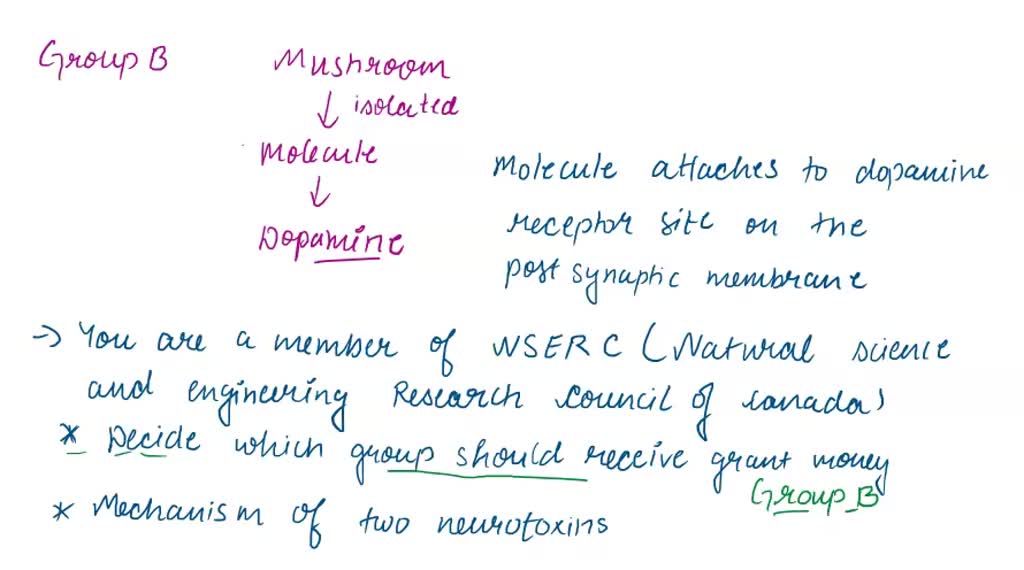 Group B
Mushroom
↓ isolated
Molecule
↓
Dopamine
Molecule attaches to dopamine
receptor site on the
post synaptic membrane
→ You are a member of NSERC (Natural science
and engineering Research Council of Canada)
* Decide which group should receive grant money
Group B
* Mechanism of two neurotoxins